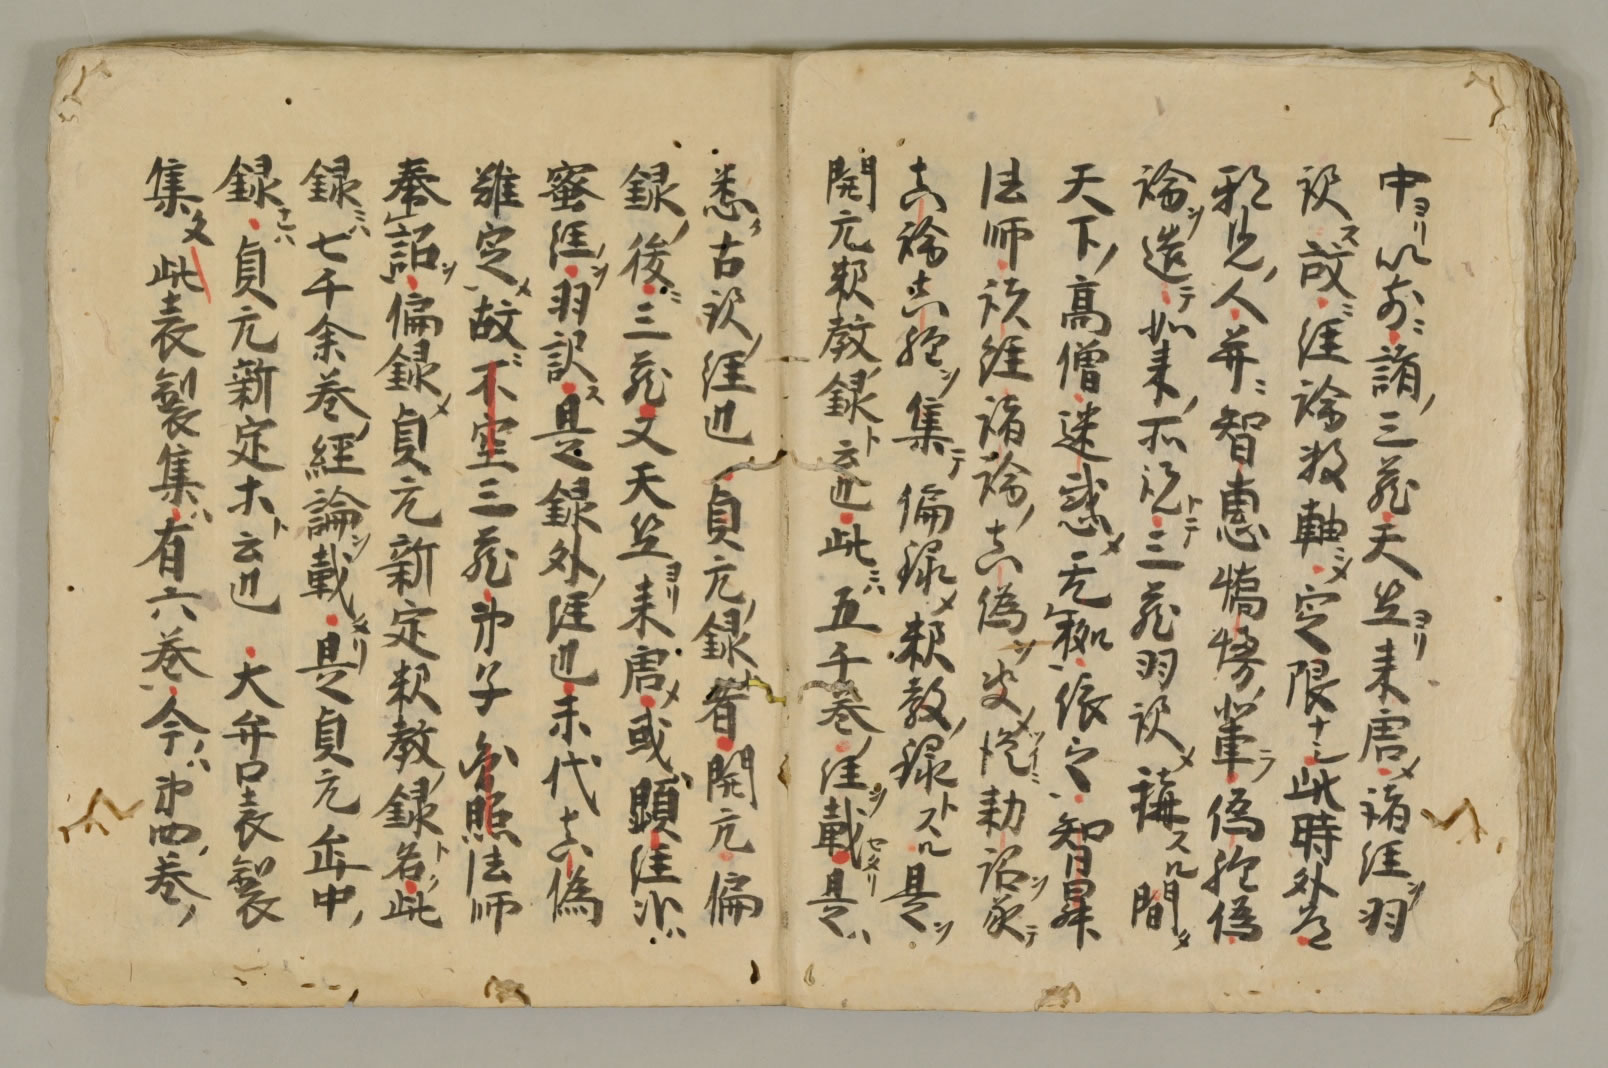 中ヨリ以前ニ諸ノ三蔵天竺ヨリ来唐メ諸経ヲ羽
訳ス故ニ経論数軸ニメ定限ナシ此時外道
邪見ノ人并ニ智恵憍慢ノ輩ラ偽経偽
論ヲ造テ如来ノ所説トテ三蔵羽訳メ稱スル間タ
天下ノ高僧迷惑メ无拠依之智昇
法師諸経諸論ノ真偽ヲ勅詔ヲ承テ
真論真経ヲ集テ偏録メ釈教ノ録トスル是ヲ
開元釈教録ト云也此ニハ五千巻ノ経ヲ載セタリ是ハ
悉ク古訳ノ経也貞元ノ録者ハ開元偏
録ノ後ニ三蔵又天竺ヨリ来唐メ或ハ顕経或ハ
蜜経ヲ羽訳ス是ノ録外ノ経也末代真偽
難定メ故ニ不空三蔵ノ弟子円照法師
奉詔ヲ偏録メ貞元新定釈教ノ録ト名ク此
録ニハ七千余巻ノ経論ヲ載メリ是貞元年中ノ
録ナレハ貞元新定ホト云也大弁口表製
集文此表製集ハ有六巻今ハ第四ノ巻ノ